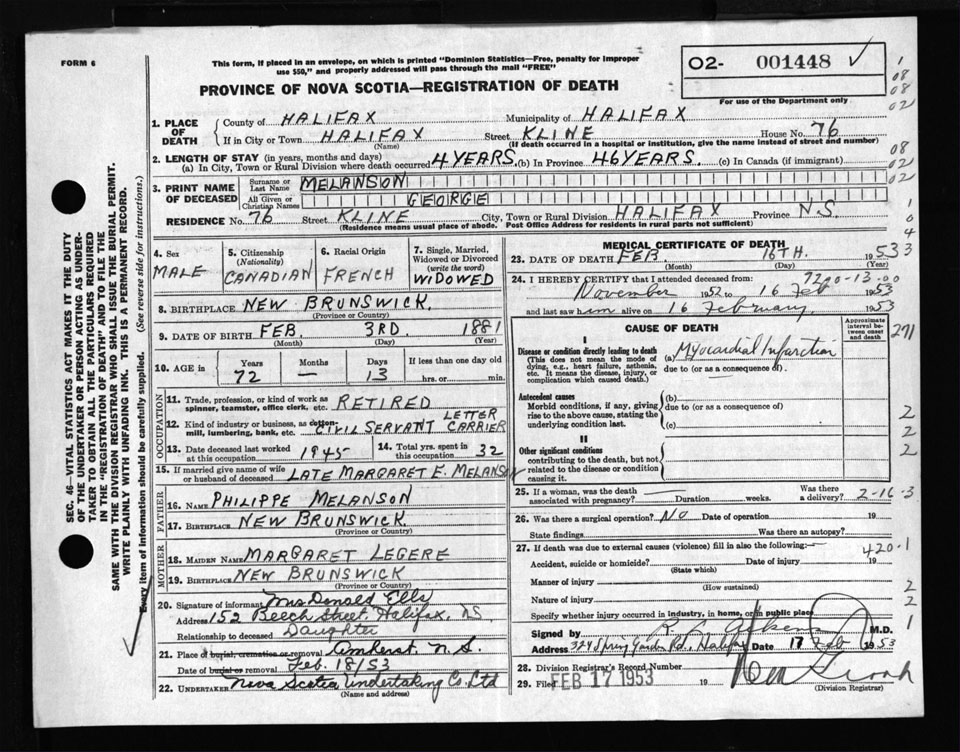 FORM 6
This form, if placed in an envelope, on which is printed "Dominion Statistics—Free, penalty for improper
use $50," and properly addressed will pass through the mail "FREE"
O2- 001448 ✓
For use of the Department only
PROVINCE OF NOVA SCOTIA—REGISTRATION OF DEATH
1. PLACE OF DEATH
County of HALIFAX Municipality of HALIFAX
If in City or Town HALIFAX Street KLINE House No. 76
(Name) (If death occurred in a hospital or institution, give the name instead of street and number)
2. LENGTH OF STAY (in years, months and days)
(a) In City, Town or Rural Division where death occurred 4 YEARS. (b) In Province 46 YEARS. (c) In Canada (if immigrant)
3. PRINT NAME OF DECEASED
Surname or Last Name MELANSON
All Given or Christian Names GEORGE
RESIDENCE No. 76 Street KLINE City, Town or Rural Division HALIFAX Province N.S.
(Residence means usual place of abode. Post Office Address for residents in rural parts not sufficient)
4. Sex
MALE
5. Citizenship (Nationality)
CANADIAN
6. Racial Origin
FRENCH
7. Single, Married, Widowed or Divorced (write the word)
WIDOWED
8. BIRTHPLACE NEW BRUNSWICK.
(Province or Country)
9. DATE OF BIRTH FEB. 3RD. 1881
(Month) (Day) (Year)
10. AGE in Years Months Days If less than one day old
72 — 13 hrs. or min.
OCCUPATION
11. Trade, profession, or kind of work as
spinner, teamster, office clerk, etc. RETIRED
12. Kind of industry or business, as cotton-
mill, lumbering, bank, etc. CIVIL SERVANT LETTER CARRIER
13. Date deceased last worked
at this occupation 1945
14. Total yrs. spent in
this occupation 32
15. If married give name of wife
or husband of deceased LATE MARGARET E. MELANSON
FATHER
16. NAME PHILIPPE MELANSON
17. BIRTHPLACE NEW BRUNSWICK.
(Province or Country)
MOTHER
18. MAIDEN NAME MARGARET LEGERE
19. BIRTHPLACE NEW BRUNSWICK
(Province or Country)
20. Signature of informant Mrs Donald Ells
Address 152 Beech Street, Halifax, NS
Relationship to deceased Daughter
21. Place of burial, cremation or removal Amherst N.S.
Date of burial or removal Feb. 18/53
22. UNDERTAKER Nova Scotia Undertaking Co. Ltd
(Name and address)
MEDICAL CERTIFICATE OF DEATH
23. DATE OF DEATH FEB. 16TH. 1953
(Month) (Day) (Year)
24. I HEREBY CERTIFY that I attended deceased from:
November 1952 to 16 Feb 1953
and last saw him alive on 16 February 1953
CAUSE OF DEATH
Approximate interval between onset and death
I
Disease or condition directly leading to death
(This does not mean the mode of
dying, e.g., heart failure, asthenia,
etc. It means the disease, injury, or
complication which caused death.)
(a) Myocardial Infarction
due to (or as a consequence of).
Antecedent causes
Morbid conditions, if any, giving
rise to the above cause, stating the
underlying condition last.
(b)
due to (or as a consequence of)
(c)
II
Other significant conditions
contributing to the death, but not
related to the disease or condition
causing it.
25. If a woman, was the death
associated with pregnancy? Duration weeks. Was there
a delivery?
2-16-3
26. Was there a surgical operation? NO Date of operation 19
State findings Was there an autopsy?
27. If death was due to external causes (violence) fill in also the following:—
420-1
Accident, suicide or homicide? Date of injury 19
(State which)
Manner of injury
(How sustained)
Nature of injury
Specify whether injury occurred in industry, in home, or in public place
Signed by M.D.
Address 324 Spring Garden Rd., Halifax Date 17 Feb 1953
28. Division Registrar's Record Number
29. Filed FEB 17 1953 19
(Division Registrar)
SEC. 46—VITAL STATISTICS ACT MAKES IT THE DUTY
OF THE UNDERTAKER OR PERSON ACTING AS UNDER-
TAKER TO OBTAIN ALL THE PARTICULARS REQUIRED
IN THE "REGISTRATION OF DEATH" AND TO FILE THE
SAME WITH THE DIVISION REGISTRAR WHO SHALL ISSUE THE BURIAL PERMIT.
WRITE PLAINLY WITH UNFADING INK. THIS IS A PERMANENT RECORD.
Every item of information should be carefully supplied. (See reverse side for instructions.)
1
08
08
02
08
02
1
0
4
3
271
2
2
2
2
1